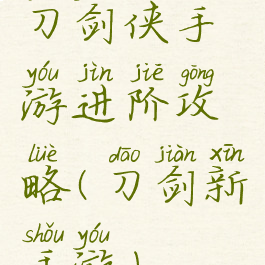 刀剑侠手
yóu jìn jiē gōng
游进阶攻
lüè dāo jiàn xīn
略(刀剑新
shǒu yóu
手游)